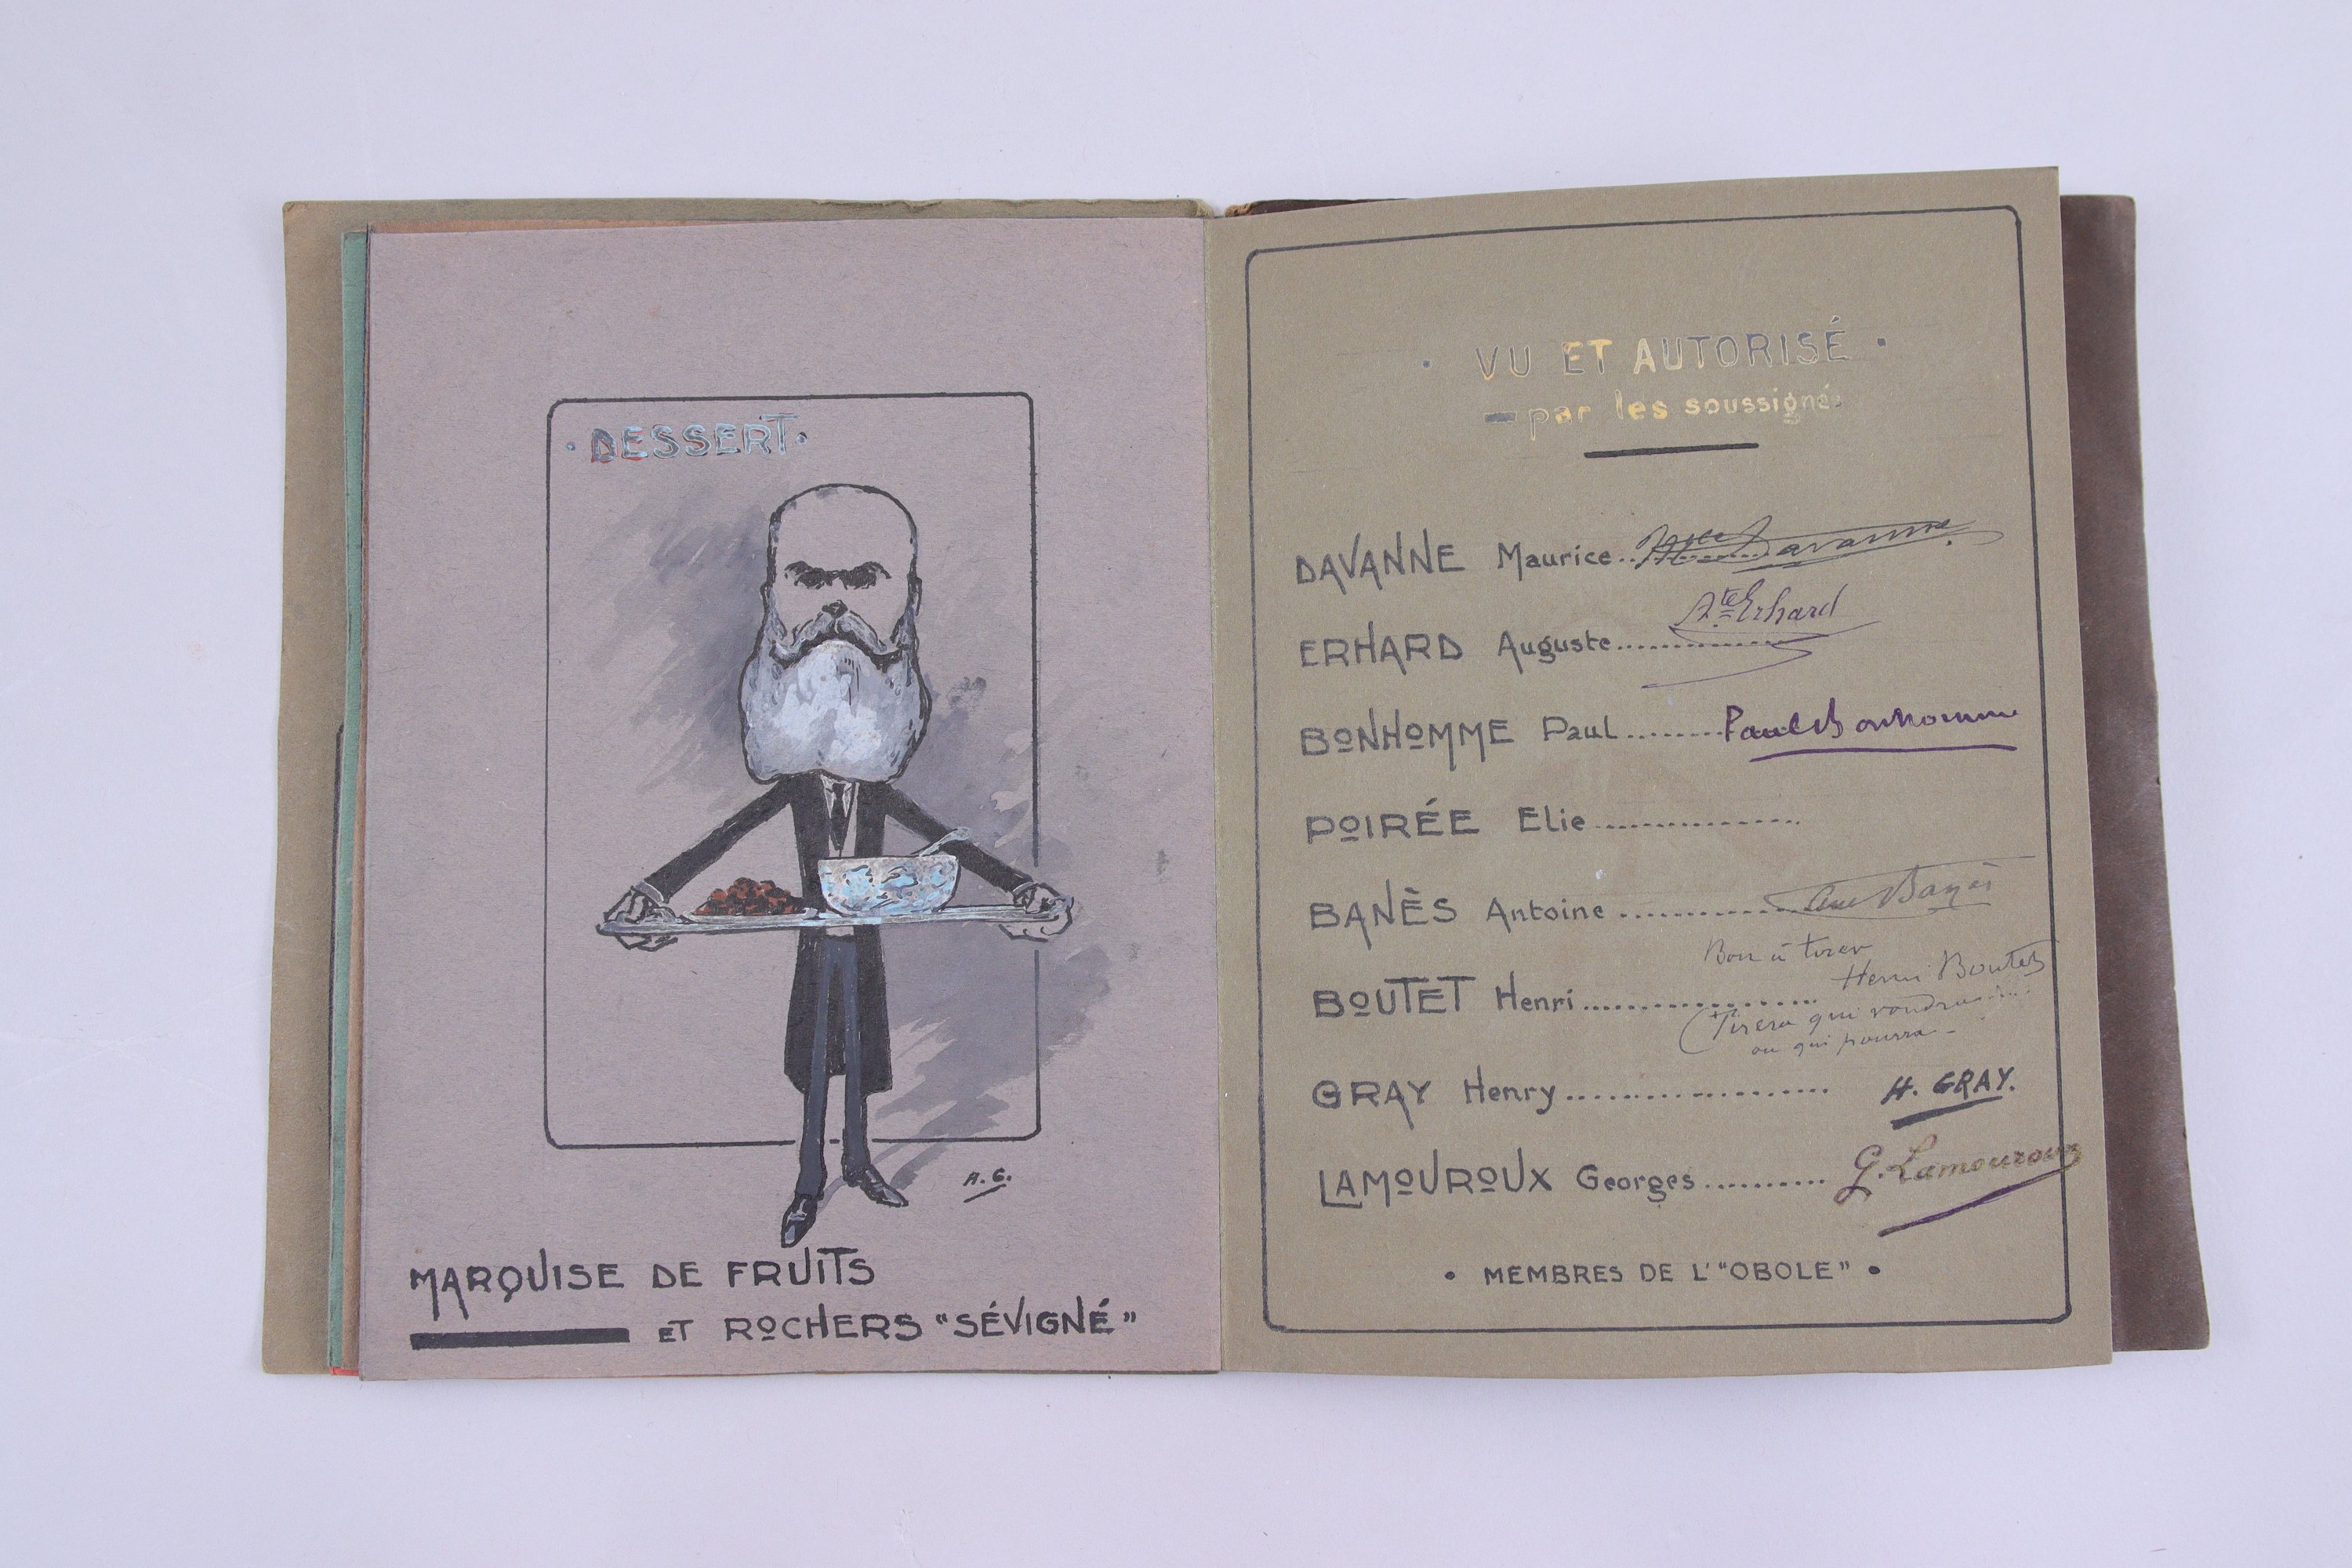 · DESSERT ·
H. G.
MARQUISE DE FRUITS
ET ROCHERS "SÉVIGNÉ"
· VU ET AUTORISÉ ·
par les soussignés
DAVANNE Maurice.. Mce Davanne.
ERHARD Auguste............... Ate Erhard
BONHOMME Paul ........ Paul Bonhomme
POIRÉE Elie................
BANÈS Antoine ................ Ant Banès
Bon à tirer
BOUTET Henri.................... Henri Boutet
(Tirera qui voudra....
ou qui pourra -
GRAY Henry....................... H. GRAY.
LAMOUROUX Georges........... G. Lamouroux
• MEMBRES DE L'"OBOLE" •